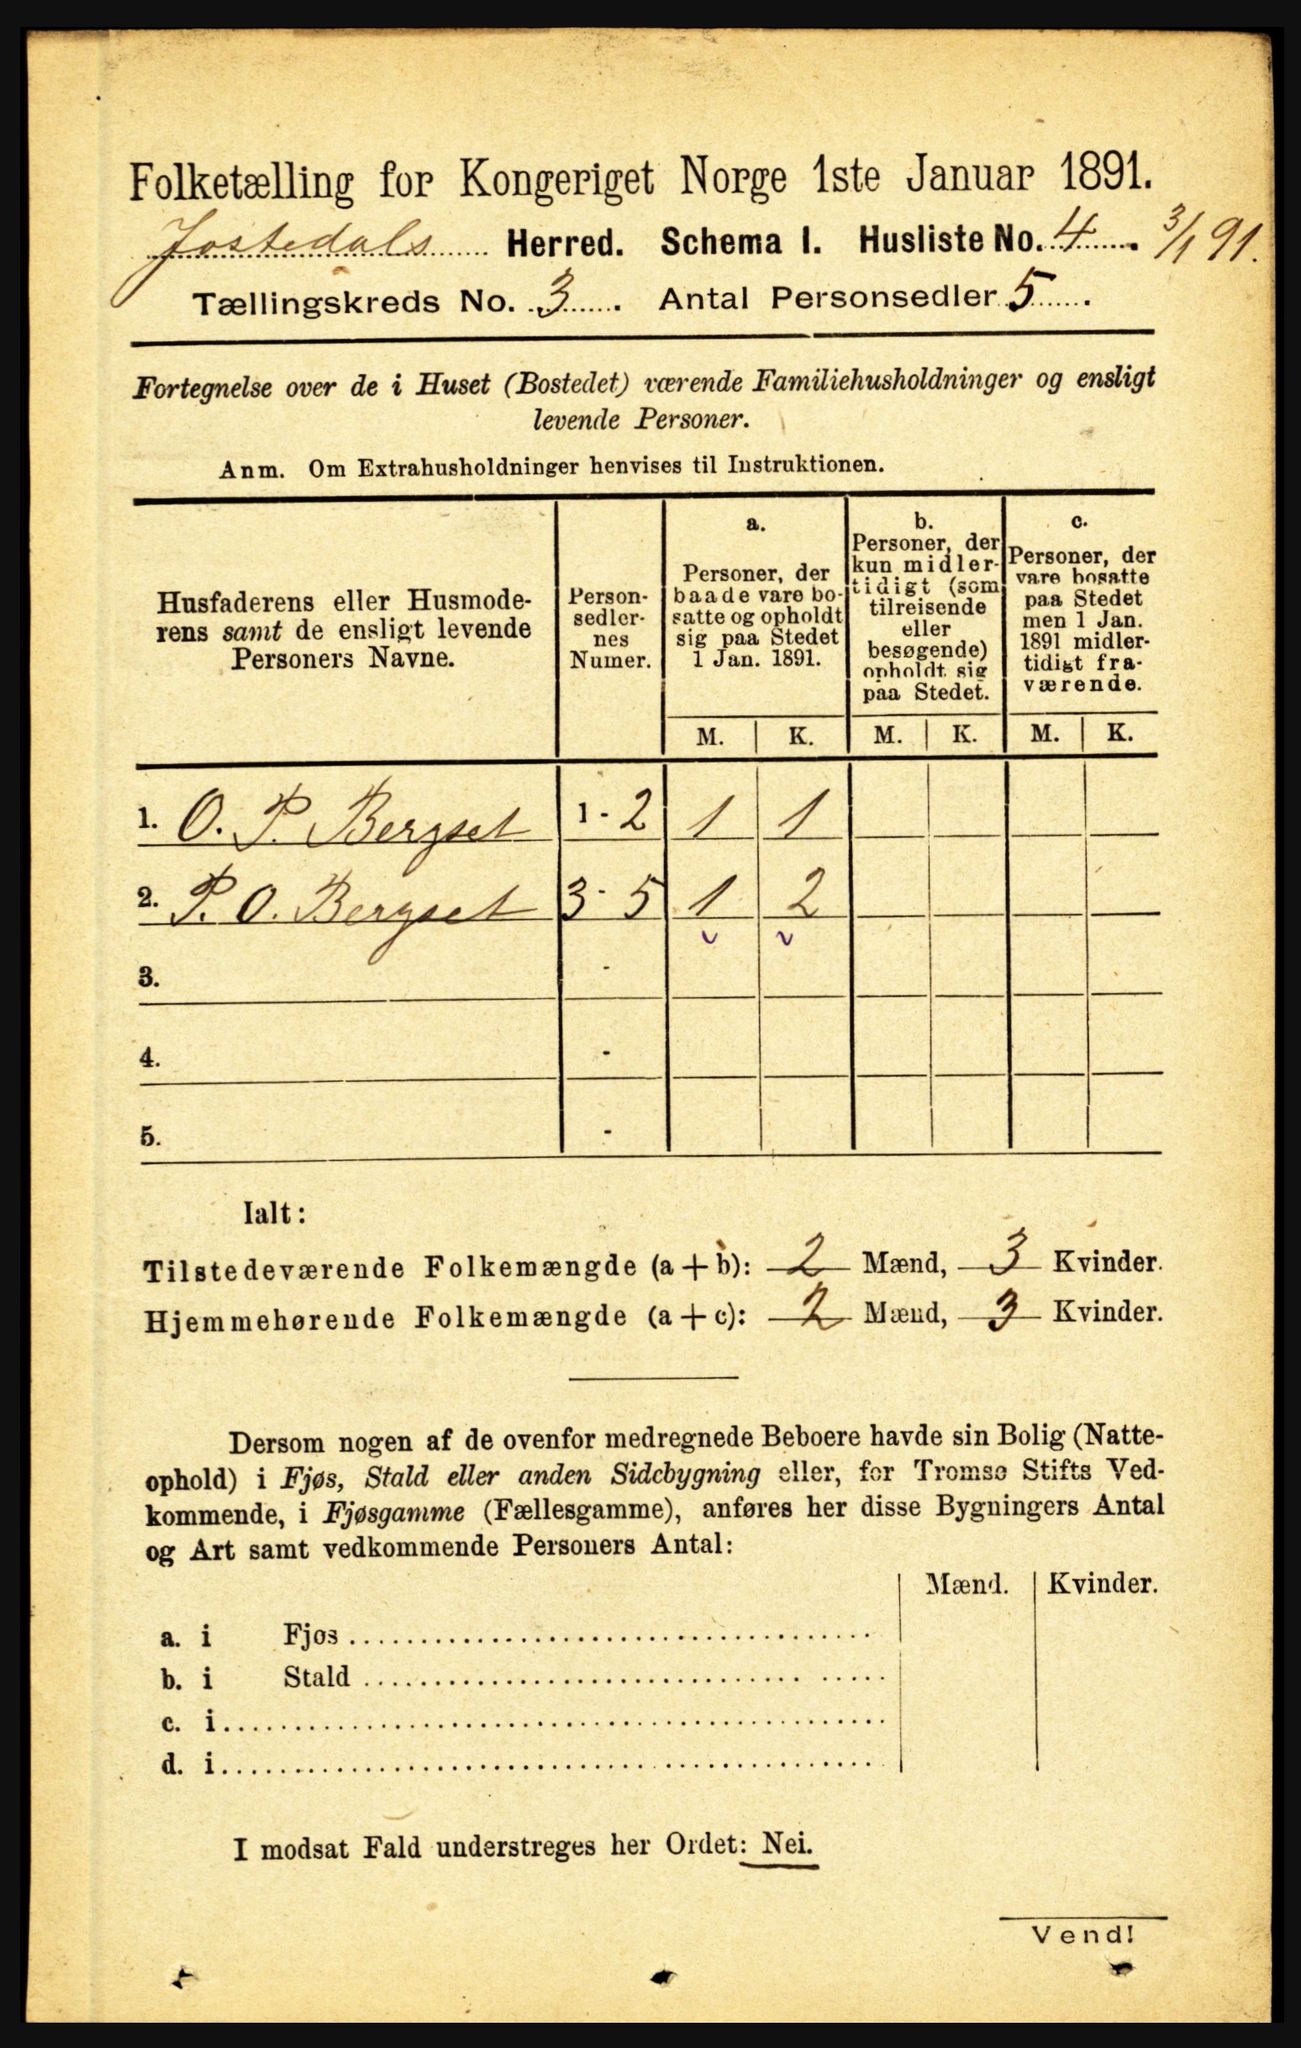 Folketælling for Kongeriget Norge 1ste Januar 1891.
Jostedals Herred. Schema I. Husliste No. 4. 3/1 91.
Tællingskreds No. 3. Antal Personsedler 5.
Fortegnelse over de i Huset (Bostedet) værende Familiehusholdninger og ensligt
levende Personer.
Anm. Om Extrahusholdninger henvises til Instruktionen.
Husfaderens eller Husmode-
rens samt de ensligt levende
Personers Navne.
Person-
sedler-
nes
Numer.
a.
Personer, der
baade vare bo-
satte og opholdt
sig paa Stedet
1 Jan. 1891.
b.
Personer, der
kun midler-
tidigt (som
tilreisende
eller
besøgende)
opholdt sig
paa Stedet.
c.
Personer, der
vare bosatte
paa Stedet
men 1 Jan.
1891 midler-
tidigt fra-
værende.
M. K. M. K. M. K.
1. O. P. Bergset 1 - 2 1 1
2. P. O. Bergset 3 - 5 1 2
3. -
4. -
5. -
Ialt:
Tilstedeværende Folkemængde (a + b): 2 Mænd, 3 Kvinder.
Hjemmehørende Folkemængde (a + c): 2 Mænd, 3 Kvinder.
Dersom nogen af de ovenfor medregnede Beboere havde sin Bolig (Natte-
ophold) i Fjøs, Stald eller anden Sidebygning eller, for Tromsø Stifts Ved-
kommende, i Fjøsgamme (Fællesgamme), anføres her disse Bygningers Antal
og Art samt vedkommende Personers Antal:
Mænd. Kvinder.
a. i Fjøs
b. i Stald
c. i
d. i
I modsat Fald understreges her Ordet: Nei.
Vend!